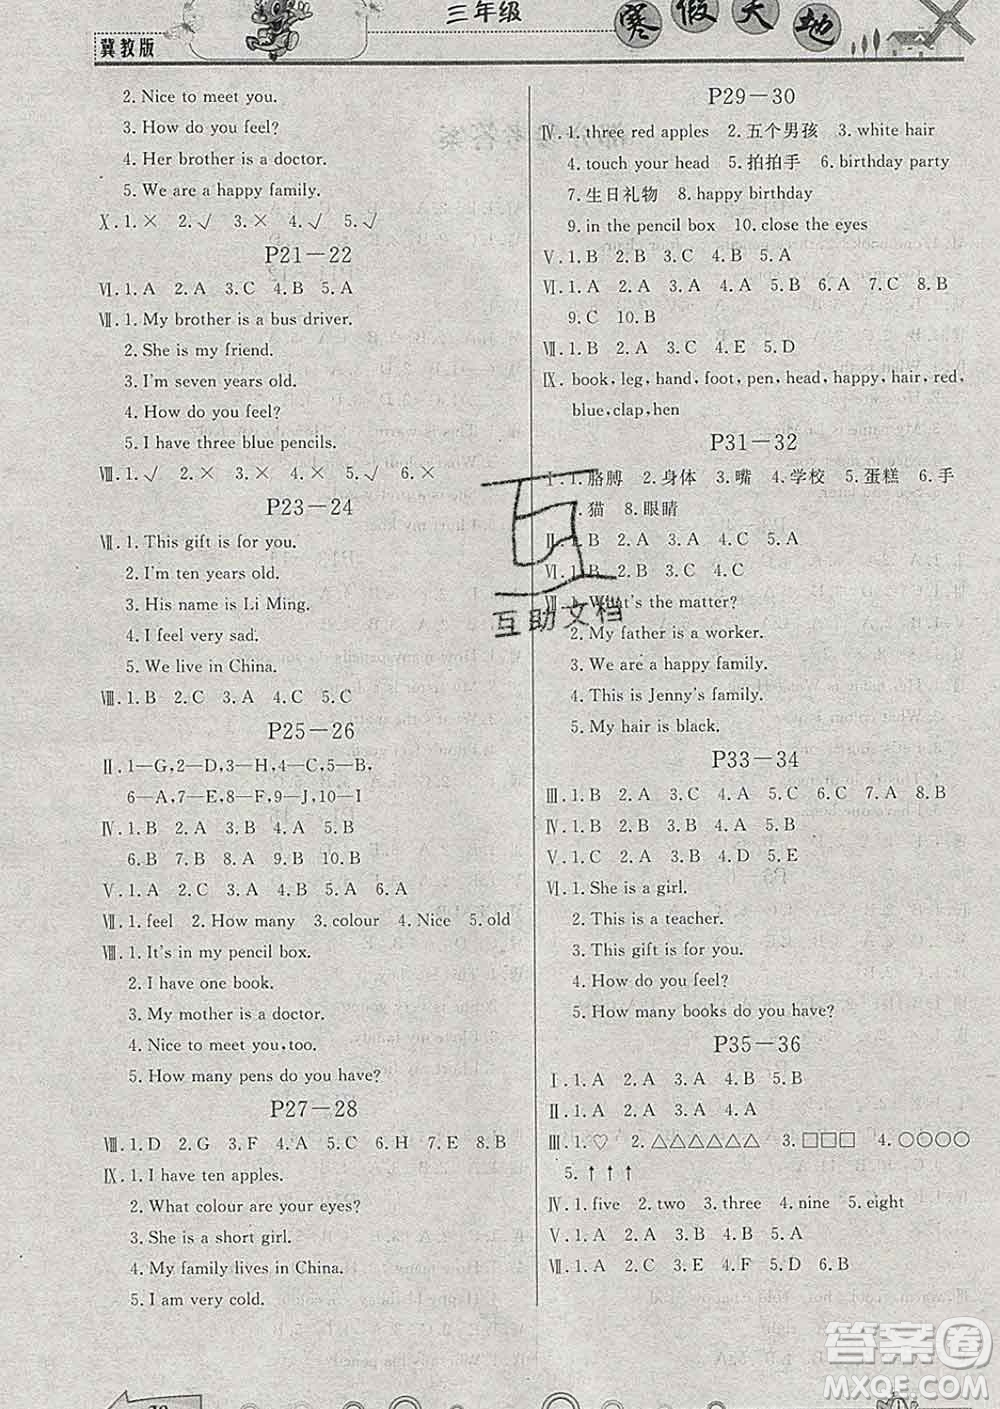 冀教版
三年级
寒假天地
2. Nice to meet you.
3. How do you feel?
4. Her brother is a doctor.
5. We are a happy family.
Ⅹ. 1. × 2. √ 3. × 4. √ 5. √
P21—22
Ⅵ. 1. A 2. A 3. C 4. B 5. A
Ⅶ. 1. My brother is a bus driver.
2. She is my friend.
3. I'm seven years old.
4. How do you feel?
5. I have three blue pencils.
Ⅷ. 1. √ 2. × 3. × 4. √ 5. √ 6. ×
P23—24
Ⅶ. 1. This gift is for you.
2. I'm ten years old.
3. His name is Li Ming.
4. I feel very sad.
5. We live in China.
Ⅷ. 1. B 2. C 3. A 4. C 5. C
P25—26
Ⅱ. 1—G, 2—D, 3—H, 4—C, 5—B,
6—A, 7—E, 8—J, 9—F, 10—I
Ⅳ. 1. B 2. A 3. B 4. A 5. B
6. B 7. B 8. A 9. B 10. B
Ⅴ. 1. A 2. C 3. B 4. A 5. A
Ⅶ. 1. feel 2. How many 3. colour 4. Nice 5. old
Ⅷ. 1. It's in my pencil box.
2. I have one book.
3. My mother is a doctor.
4. Nice to meet you, too.
5. How many pens do you have?
P27—28
Ⅷ. 1. D 2. G 3. F 4. A 5. C 6. H 7. E 8. B
Ⅸ. 1. I have ten apples.
2. What colour are your eyes?
3. She is a short girl.
4. My family lives in China.
5. I am very cold.
P29—30
Ⅳ. 1. three red apples 2. 五个男孩 3. white hair
4. touch your head 5. 拍拍手 6. birthday party
7. 生日礼物 8. happy birthday
9. in the pencil box 10. close the eyes
Ⅴ. 1. B 2. B 3. C 4. C 5. A
Ⅵ. 1. A 2. A 3. A 4. B 5. C 6. A 7. C 8. B
9. C 10. B
Ⅶ. 1. B 2. A 3. C 4. E 5. D
Ⅸ. book, leg, hand, foot, pen, head, happy, hair, red,
blue, clap, hen
P31—32
Ⅰ. 1. 胳膊 2. 身体 3. 嘴 4. 学校 5. 蛋糕 6. 手
猫 8. 眼睛
Ⅱ. 1. B 2. A 3. A 4. C 5. A
Ⅵ. 1. B 2. B 3. C 4. C
Ⅶ. 1. What's the matter?
2. My father is a worker.
3. We are a happy family.
4. This is Jenny's family.
5. My hair is black.
P33—34
Ⅲ. 1. B 2. A 3. A 4. C 5. B 6. C 7. A 8. B
Ⅳ. 1. B 2. B 3. A 4. B 5. A
Ⅴ. 1. A 2. C 3. B 4. D 5. E
Ⅵ. 1. She is a girl.
2. This is a teacher.
3. This gift is for you.
4. How do you feel?
5. How many books do you have?
P35—36
Ⅰ. 1. A 2. A 3. A 4. B 5. B
Ⅱ. 1. A 2. A 3. A 4. A 5. A
Ⅲ. 1. ♡ 2. △△△△△△ 3. □□□ 4. ○○○○
5. ↑↑↑
Ⅳ. 1. five 2. two 3. three 4. nine 5. eight
Ⅴ. 1. A 2. A 3. B 4. B 5. A
Ⅶ. 1. B 2. B 3. A 4. B 5. B
互助文档
答案圈
MXQE.COM